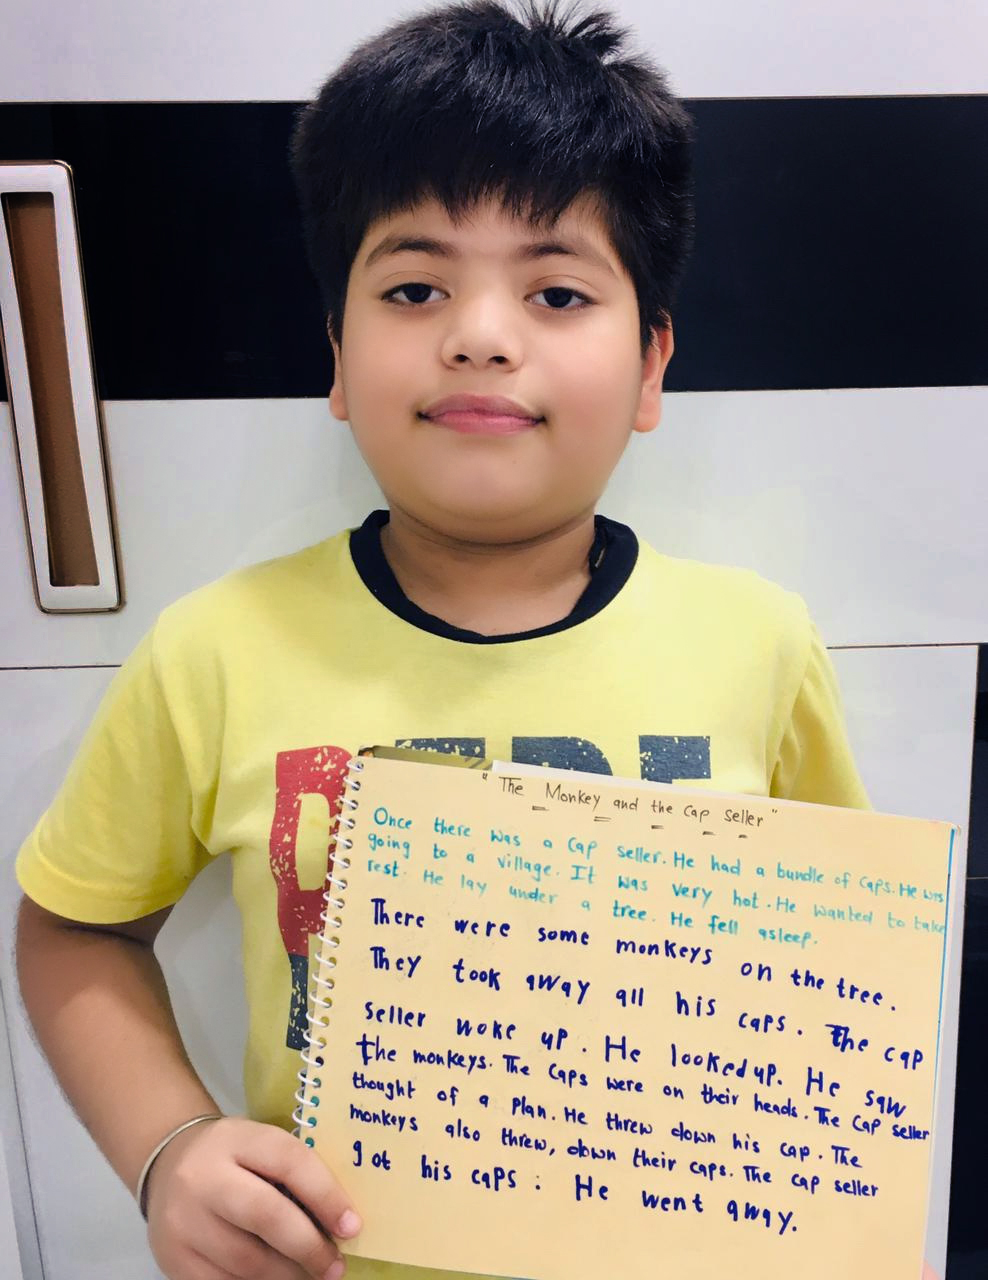 "The Monkey and the Cap seller"
Once there was a Cap seller. He had a bundle of Caps. He was
going to a village. It was very hot. He wanted to take
rest. He lay under a tree. He fell asleep.
There were some monkeys on the tree.
They took away all his caps. The cap
seller woke up. He looked up. He saw
the monkeys. The Caps were on their heads. The Cap seller
thought of a plan. He threw down his cap. The
monkeys also threw, down their caps. The cap seller
got his caps. He went away.